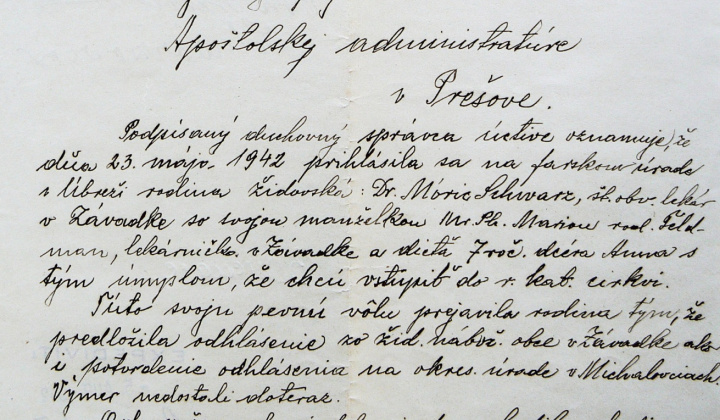 Apoštolskej administratúre
v Prešove.
Podpísaný duchovný správca úctive oznamuje, že
dňa 23. májo. 1942 prihlásila sa na farskom úrade
v rodina židovská: Dr. Móric Schwarz, št. obv. lekár
v Závadke so svojou manželkou Mr. Ph. Mariou rod. Feld-
man, lekárnička v Závadke a dieťa 7 roč. dcéra Anna s
tým úmyslom, že chcú vstúpiť do r. kat. cirkvi.
Túto svoju pevnú vôlu prejavila rodina tým, že
predložila odhlásenie zo žid. nábož. obce v Závadke ako
i potvrdenie odhlásenia na okres. úrade v Michalovciach.
Výmer nedostali doteraz.